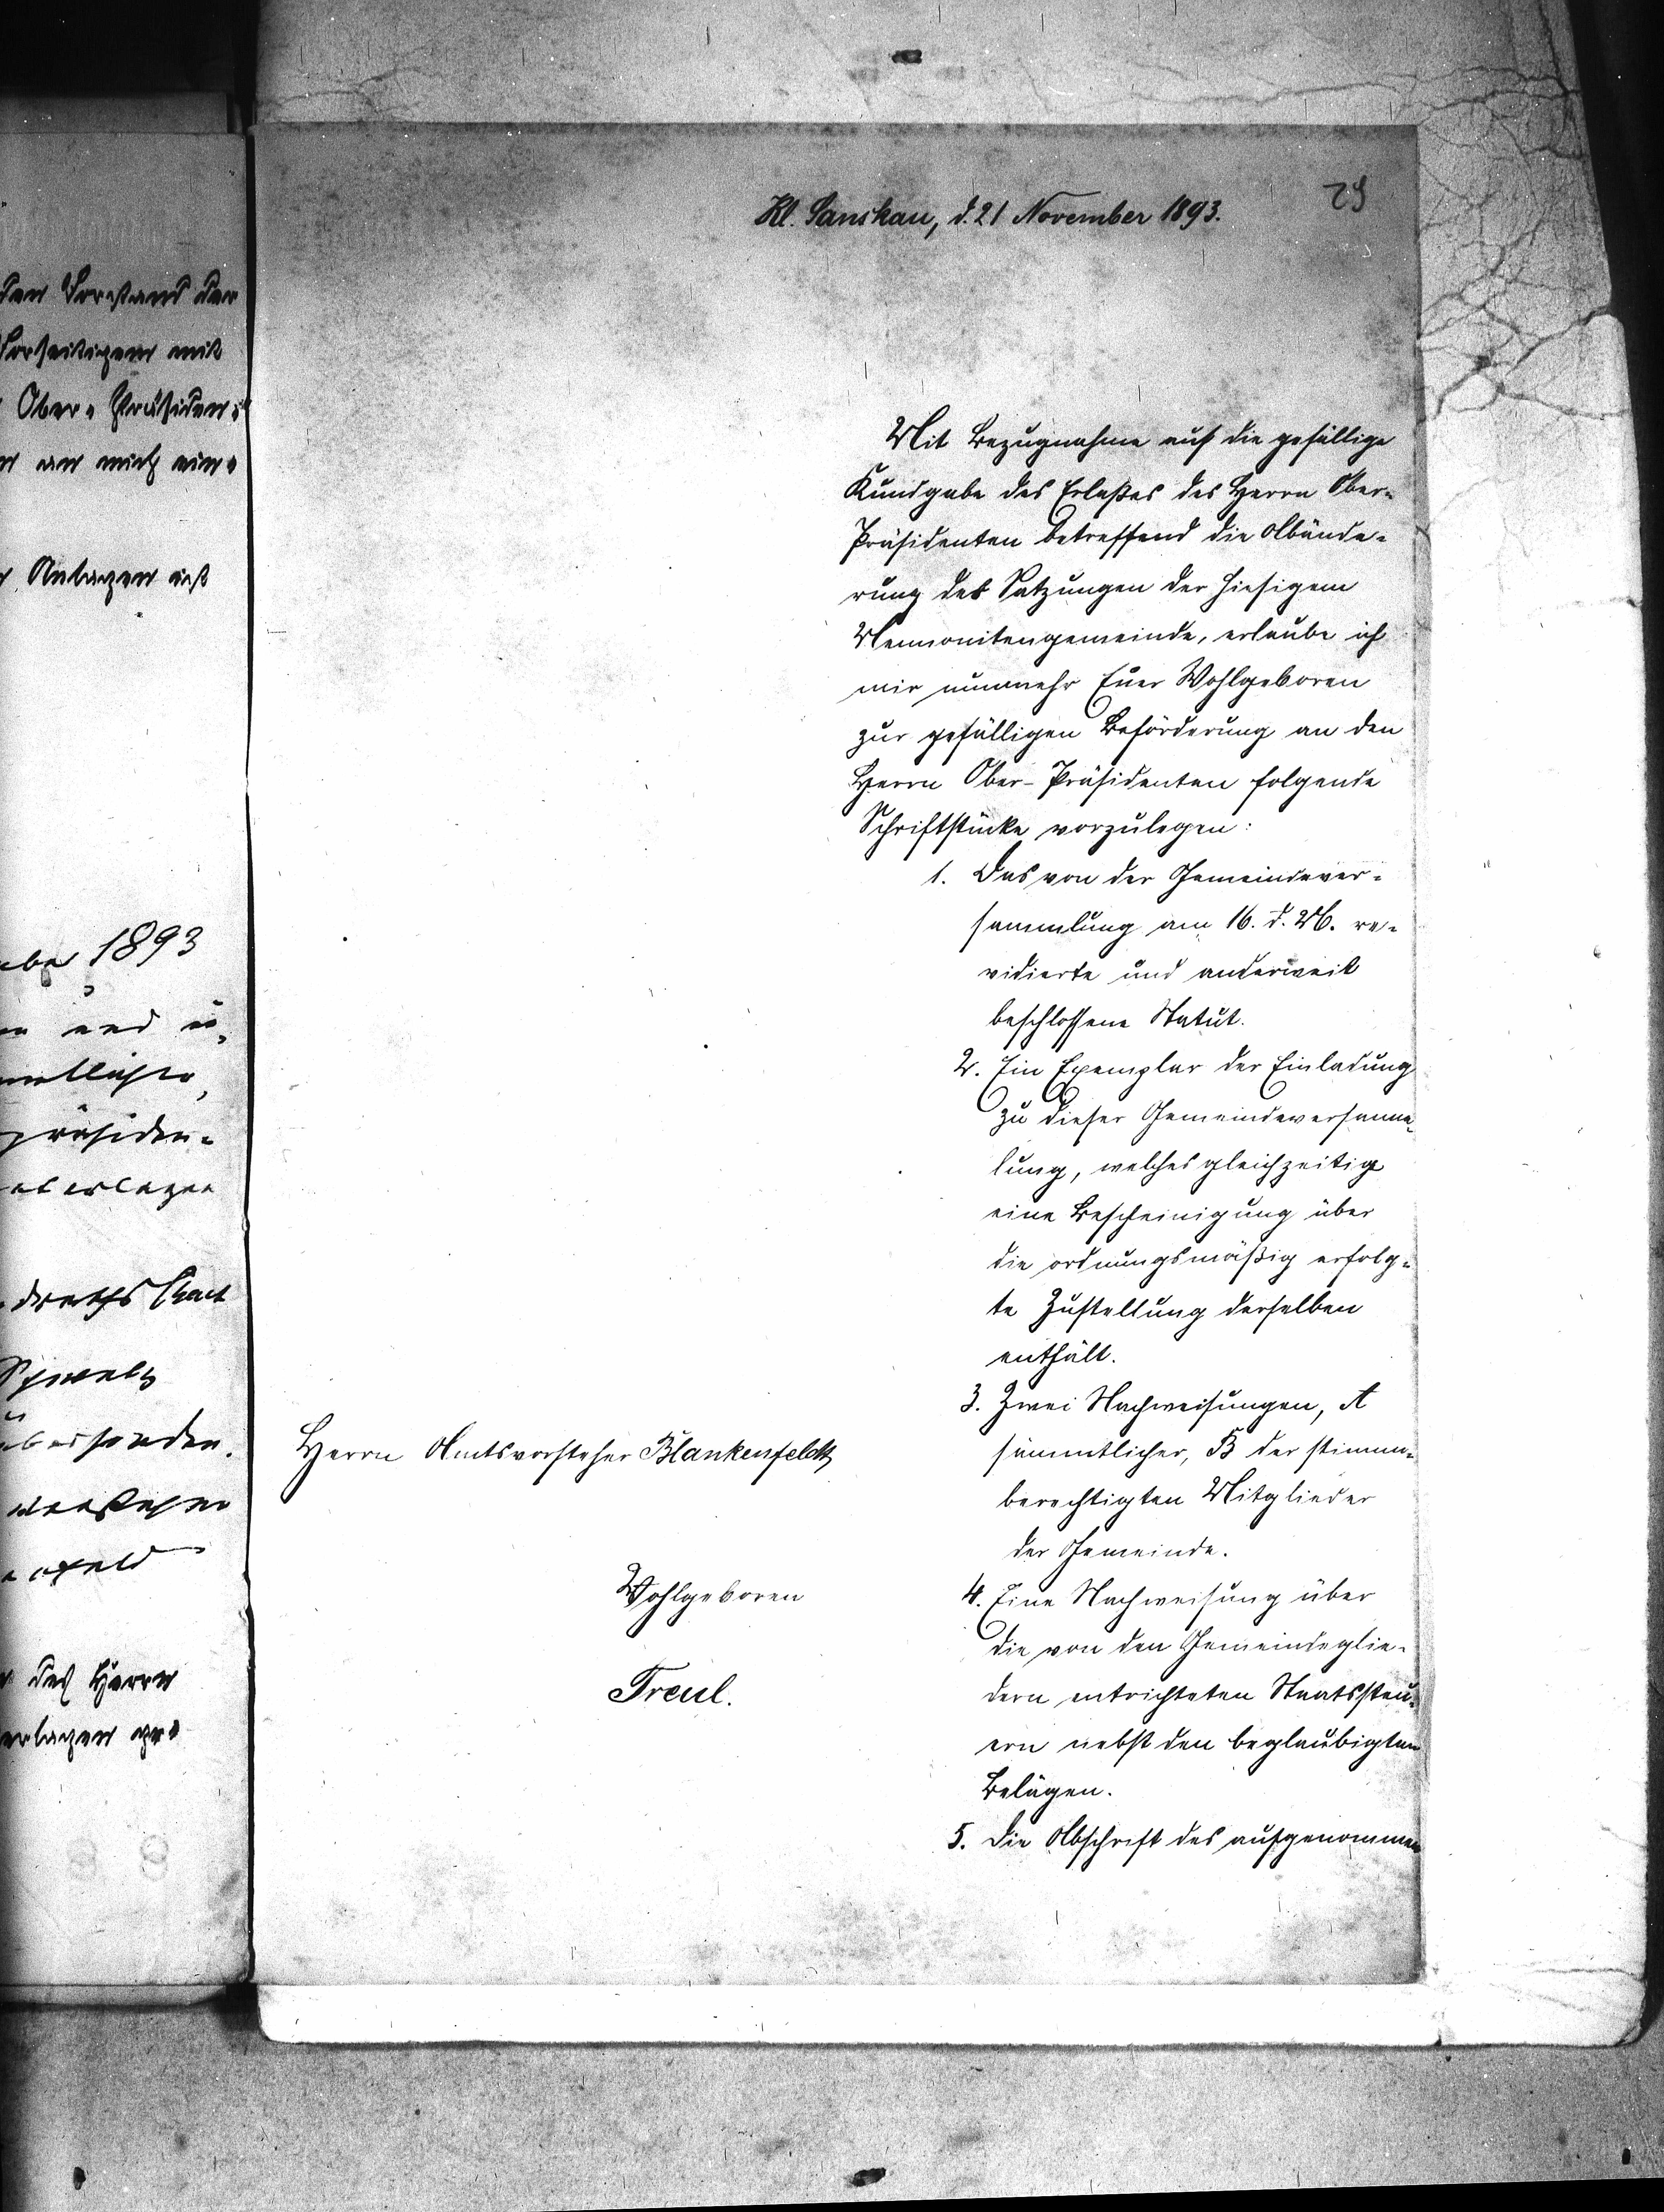 29
Kl. Sanskau, d. 21 November 1893.
Mit Bezugnahme auf die gefällige
Kundgabe des Erlaßes des Herrn Ober-
Präsidenten betreffend die Abände-
rung des Satzungen der hiesigem
Mennonitengemeinde, erlaube ich
mir nunmehr Euer Wohlgeboren
zur gefälligen Beförderung an den
Herrn Ober-Präsidenten folgende
Schriftstücke vorzulegen:
1. Das von der Gemeindever-
sammlung am 16. d. M. re-
vidierte und anderweit
beschlossene Statut.
2. Ein Exemplar der Einladung
zu dieser Gemeindeversamm-
lung, welches gleichzeitig
eine Bescheinigung über
die ordnungsmäßig erfolg-
te Zustellung derselben
enthält.
3. Zwei Nachweisungen, A
sämmtlicher, B der stimm-
berechtigten Mitglieder
der Gemeinde.
4. Eine Nachweisung über
die von den Gemeindeglie-
dern entrichteten Staatssteu-
ern nebst den beglaubigten
Belägen.
5. Die Abschrift des aufgenommen
Herrn Amtsvorsteher Blankenfeldt
Wohlgeboren
Treul.
den Vorstand der
Vorseitigem mit
Ober-Präsiden-
an mich ein-
Anlagen erst
1893
und
präsiden-
übersenden.
des Herrn